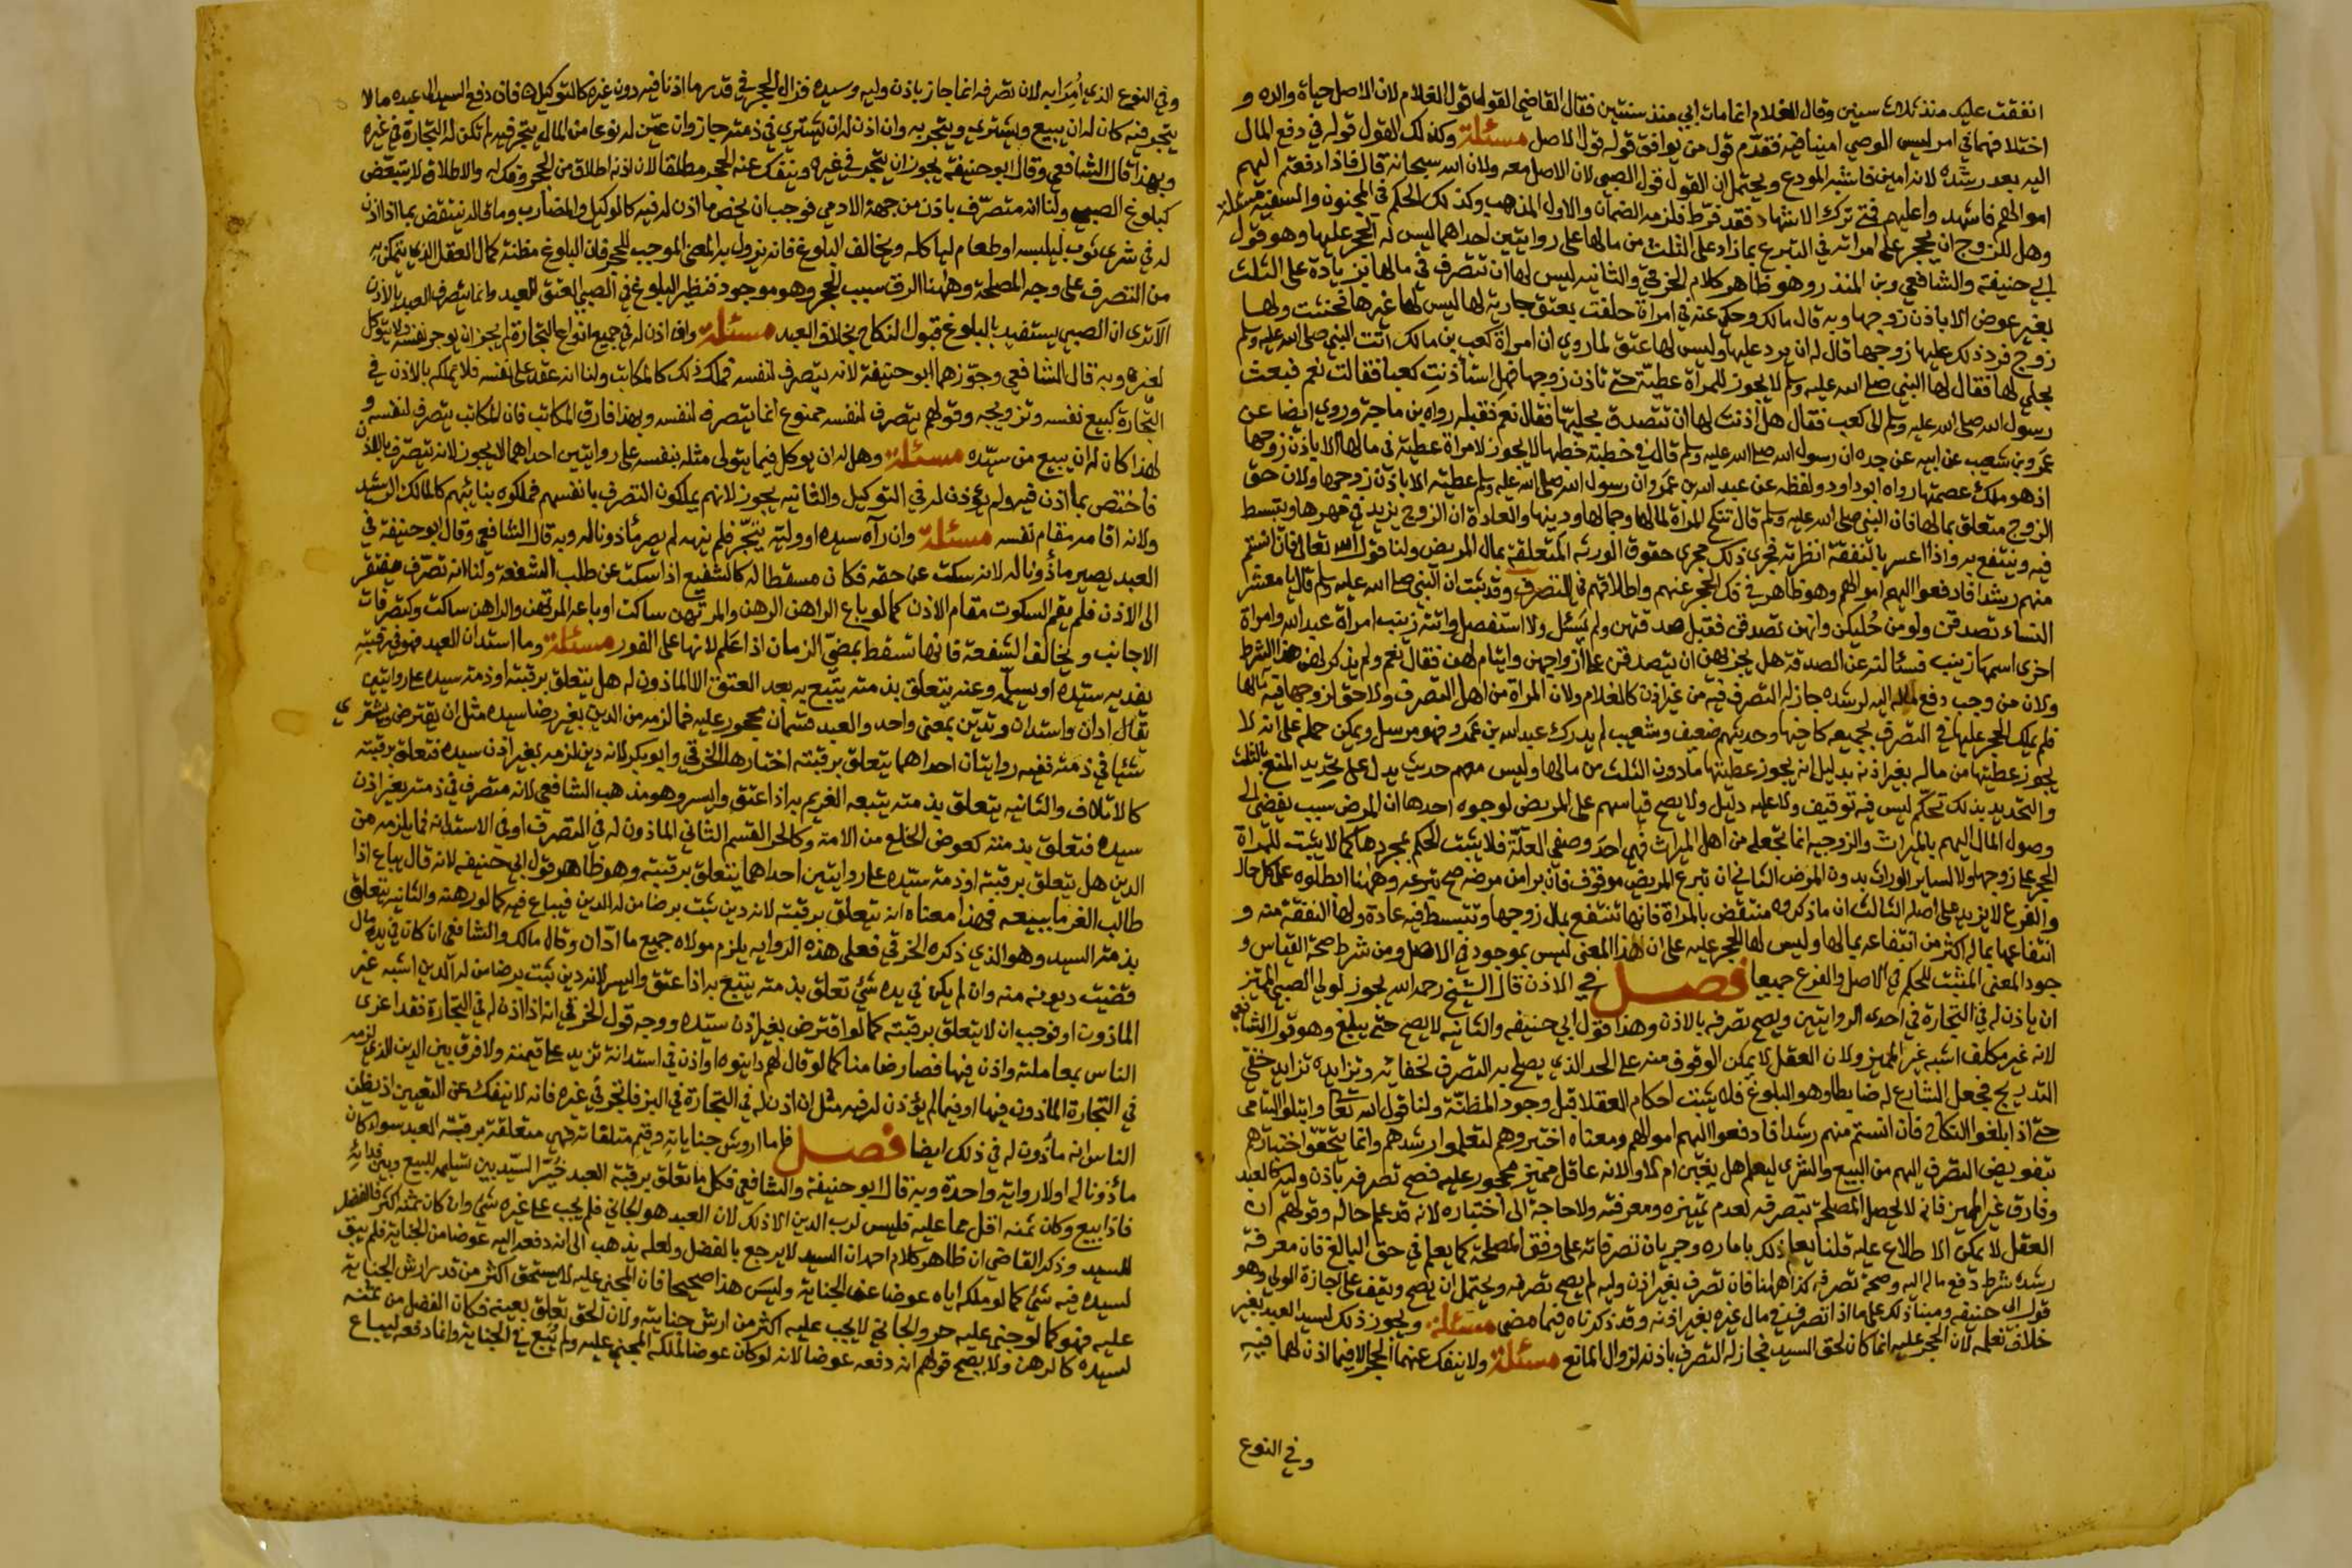 انفقت عليك منذ ثلاث سنين وقال الغلام انما مات ابي منذ سنتين فقال القاضي القول قول الغلام لان الاصل حياة والده و
اختلافهما في امر ليس الوصي امينا فيه فقدم قول من يوافق قوله قول الاصل مسئلة وكذلك القول قوله في دفع المال
اليه بعد رشده لانه امين فاشبه المودع ويحتمل ان القول قول الصبي لان الاصل معه ولان الله سبحانه قال فاذا دفعتم اليهم
اموالهم فاشهدوا عليهم فمتى ترك الاشهاد فقد فرط فلزمه الضمان والاول المذهب وكذلك الحكم في المجنون والسفيه مسئلة
وهل للزوج ان يحجر على امراته في التبرع بما زاد على الثلث من مالها على روايتين احداهما ليس له الحجر عليها وهو قول
ابي حنيفة والشافعي وبن المنذر وهو ظاهر كلام الخرقي والثانيه ليس لها ان تتصرف في مالها بزيادة على الثلث
بغير عوض الا باذن زوجها وبه قال مالك وحكي عنه في امراة حلفت بعتق جارية لها ليس لها غيرها فحنثت ولها
زوج فرد ذلك عليها زوجها قال له ان يرد عليها وليس لها عتق لما روي ان امراة كعب بن مالك اتت النبي صلى الله عليه وسلم
بحلي لها فقال لها النبي صلى الله عليه وسلم لا يجوز للمراة عطية حتى تاذن زوجها فهل استأذنت كعبا فقالت نعم فبعث
رسول الله صلى الله عليه وسلم الى كعب فقال هل أذنت لها ان تتصدق بحليها فقال نعم فقبله رواه بن ماجة وروي ايضا عن
عمرو بن شعيب عن ابيه عن جده ان رسول الله صلى الله عليه وسلم قال في خطبة خطبها لا يجوز لامراة عطية في مالها الا باذن زوجها
اذ هو ملك عصمتها رواه ابو داود ولفظه عن عبد الله بن عمرو ان رسول الله صلى الله عليه وسلم عطية الا باذن زوجها ولان حق
الزوج متعلق بمالها فان النبي صلى الله عليه وسلم قال تنكح المراة لمالها وجمالها ودينها والعادة ان الزوج يزيد في مهرها ويتبسط
فيه وينتفع به واذا اعسر بالنفقة انظرته فجرى ذلك مجرى حقوق الورثه المتعلقة بمال المريض ولنا قول الله تعالى فان انستم
منهم رشدا فادفعوا اليهم اموالهم وهو ظاهر في فك الحجر عنهم واطلاقهم في التصرف وقد ثبت ان النبي صلى الله عليه وسلم قال يا معشر
النساء تصدقن ولو من حليكن وانهن تصدقن فقبل صدقتهن ولم يسئل ولا استفصل واتته زينب امراة عبد الله وامراة
اخرى اسمها زينب فسألته عن الصدقة هل يجزيهن ان يتصدقن على ازواجهن وايتام لهن فقال نعم ولم يذكر لهن هذا الشرط
ولان من وجب دفع ماله اليه لرشده جاز له التصرف فيه من غير اذن كالغلام ولان المراة من اهل التصرف ولا حق لزوجها في مالها
فلم يملك الحجر عليها في التصرف بجميعه كأختها وحديثهم ضعيف وشعيب لم يدرك عبد الله بن عمرو فهو مرسل ويمكن حمله على انه لا
يجوز عطيتها من ماله بغير اذنه بدليل انه يجوز عطيتها ما دون الثلث من مالها وليس معهم حديث يدل على تحديد المنع بالثلث
والتحديد بذلك تحكم ليس فيه توقيف ولا عليه دليل ولا يصح قياسهم على المريض لوجوه احدها ان المرض سبب يفضي الى
وصول المال اليهم بالميراث والزوجيه انما تجعله من اهل الميراث فهي احد وصفي العلة فلا يثبت الحكم بمجردها كما لا يثبت للمراة
الحجر على زوجها ولا لسائر الوراث بدون المرض الثاني ان تبرع المريض موقوف فان برا من مرضه صح تبرعه وههنا ابطلوه على كل حال
والفرع لا يزيد على اصله الثالث ان ما ذكروه منتقض بالمراة فانها تنتفع بمال زوجها وتتبسط فيه عادة ولها النفقة منه و
انتفاعها بماله اكثر من انتفاعه بمالها وليس لها الحجر عليه على ان هذا المعنى ليس بموجود في الاصل ومن شرط صحة القياس و
جود المعنى المثبت للحكم في الاصل والفرع جميعا فصل في الاذن قال الشيخ رحمه الله يجوز لولي الصبي المميز
ان ياذن له في التجارة في احدى الروايتين ويصح تصرفه بالاذن وهذا قول ابي حنيفه والثانيه لا يصح حتى يبلغ وهو قول الشافعي
لانه غير مكلف اشبه غير المميز ولان العقل لا يمكن الوقوف منه على الحد الذي يصلح به التصرف لخفائه وتزايده تزايد خفي
التدريج فجعل الشارع له ضابطا وهو البلوغ فلا يثبت احكام العقلا قبل وجود المظنة ولنا قول الله تعالى وابتلوا اليتامى
حتى اذا بلغوا النكاح فان انستم منهم رشدا فادفعوا اليهم اموالهم ومعناه اختبروهم لتعلموا رشدهم وانما يتحقق اختبارهم
بتفويض التصرف اليهم من البيع والشرى ليعلم هل يغبن ام لا ولانه عاقل مميز محجور عليه فصح تصرفه باذن وليه كالعبد
وفارق غير المميز فانه لا تحصل المصلحة بتصرفه لعدم تمييزه ومعرفته ولا حاجة الى اختباره لانه قد علم حاله وقولهم ان
العقل لا يمكن الاطلاع عليه قلنا يعلم ذلك باماره وجريان تصرفاته على وفق المصلحة كما يعلم في حق البالغ فان معرفة
رشده شرط دفع ماله اليه وصحة تصرفه كذا ههنا فان تصرف بغير اذن وليه لم يصح تصرفه ويحتمل ان يصح ويقف على اجازة الولي وهو
قول ابي حنيفه ومبنا ذلك على ما اذا تصرف في مال غيره بغير اذنه وقد ذكرناه فيما مضى مسئلة ويجوز ذلك لسيد العبد بغير
خلاف نعلمه لان الحجر عليه انما كان لحق السيد فجاز له التصرف باذنه لزوال المانع مسئلة ولا ينفك عنهما الحجر الا فيما اذن لهما فيه
وفي النوع
وفي النوع الذي امرا به لان تصرفه انما جاز باذن وليه وسيده فزال الحجر في قدر ما اذنا فيه دون غيره كالتوكيل فان دفع السيد الى عبده مالا
يتجر فيه كان له ان يبيع ويشتري ويتجر به وان اذن له ان يشتري في ذمته جاز وان عين له نوعا من المال يتجر فيه لم تكن له التجارة في غيره
وبهذا قال الشافعي وقال ابو حنيفة يجوز ان يتجر في غيره وينفك عنه الحجر مطلقا لان اذنه اطلاق من الحجر وفك له والاطلاق لا يتبعض
كبلوغ الصبي ولنا انه متصرف باذن من جهة الادمي فوجب ان يختص ما اذن له فيه كالوكيل والمضارب وما قاله ينتقض بما اذا اذن
له في شرى ثوب ليلبسه او طعام لياكله ويخالف البلوغ فانه يزول به المعنى الموجب للحجر فان البلوغ مظنة كمال العقل الذي يتمكن به
من التصرف على وجه المصلحة وههنا الرق سبب الحجر وهو موجود فنظير البلوغ في الصبي العتق للعبد وانما يتصرف العبد بالاذن
الا ترى ان الصبي يستفيد بالبلوغ قبول النكاح بخلاف العبد مسئلة وان اذن له في جميع انواع التجارة لم يجز ان يوجر نفسه ولا يتوكل
لغيره وبه قال الشافعي وجوزهما ابو حنيفة لانه يتصرف لنفسه فملك ذلك كالمكاتب ولنا انه عقد على نفسه فلا يملكه بالاذن في
التجارة كبيع نفسه وتزويجه وقولهم يتصرف لنفسه ممنوع انما يتصرف لنفسه وبهذا فارق المكاتب فان المكاتب يتصرف لنفسه و
لهذا كان له ان يبيع من سيده مسئلة وهل له ان يوكل فيما يتولى مثله بنفسه على روايتين احداهما لا يجوز لانه تصرف بالاذن
فاختص بما اذن فيه ولم يؤذن له في التوكيل والثانيه يجوز لانهم يملكون التصرف بانفسهم فملكوه بنائبهم كالمالك الرشيد
ولانه اقامه مقام نفسه مسئلة وان رآه سيده او وليه يتجر فلم ينهه لم يصر مأذونا له وبه قال الشافعي وقال ابو حنيفة في
العبد يصير مأذونا له لانه سكت عن حقه فكان مسقطا له كالشفيع اذا سكت عن طلب الشفعة ولنا انه تصرف مفتقر
الى الاذن فلم يقم السكوت مقام الاذن كما لو باع الراهن الرهن والمرتهن ساكت او باعه المرتهن والراهن ساكت وكتصرفات
الاجانب ويخالف الشفعة فانها تسقط بمضي الزمان اذا علم لانها على الفور مسئلة وما استدان العبد فهو في رقبته
يفديه سيده او يسلمه وعنه يتعلق بذمته يتبع به بعد العتق الا الماذون له هل يتعلق برقبته او ذمته سيده على روايتين
يقال ادان واستدان وتدين بمعنى واحد والعبد قسمان محجور عليه فما لزمه من الدين بغير رضا سيده مثل ان يقترض ويشتري
شيئا في ذمته ففيه روايتان احداهما يتعلق برقبته اختارها الخرقي وابو بكر لانه دين لزمه بغير اذن سيده فتعلق برقبته
كالاتلاف والثانيه يتعلق بذمته يتبعه الغريم به اذا عتق وايسر وهو مذهب الشافعي لانه متصرف في ذمته بغير اذن
سيده فتعلق بذمته كعوض الخلع من الامة وكالحر القسم الثاني الماذون له في التصرف او في الاستدانه فما يلزمه من
الدين هل يتعلق برقبته او ذمة سيده على روايتين احداهما يتعلق برقبته وهو ظاهر قول ابي حنيفه لانه قال يباع اذا
طالب الغرما ببيعه فهذا معناه انه يتعلق برقبته لانه دين ثبت برضا من له الدين فيباع فيه كما لو رهنه والثانيه يتعلق
بذمة السيد وهو الذي ذكره الخرقي فعلى هذه الروايه يلزم مولاه جميع ما ادان وقال مالك والشافعي ان كان في يده مال
قضيت ديونه منه وان لم يكن في يده شئ تعلق بذمته يتبع به اذا عتق وايسر لانه دين ثبت برضا من له الدين اشبه غير
الماذون او فوجب ان لا يتعلق برقبته كما لو اقترض بغير اذن سيده ووجه قول الخرقي انه اذا اذن له في التجارة فقد اغرى
الناس بمعاملته واذن فيها فصار ضامنا كما لو قال لهم داينوه او اذن في استدانة تزيد على قيمته ولا فرق بين الدين الذي لزمه
في التجارة الماذون فيها او فيما لم يؤذن له فيه مثل ان اذن له في التجارة في البز فاتجر في غيره فانه لا ينفك عن التغرير اذ يظن
الناس انه مأذون له في ذلك ايضا فصل فاما اروش جناياته وقيم متلفاته فهي متعلقة برقبة العبد سوا كان
مأذونا له اولا رواية واحدة وبه قال ابو حنيفة والشافعي فكل ما تعلق برقبة العبد خير السيد بين تسليمه للبيع وبين فدائه
فاذا بيع وكان ثمنه اقل مما عليه فليس لرب الدين الا ذلك لان العبد هو الجاني فلم يجب على غيره شئ وان كان ثمنه اكثر فالفضل
للسيد وذكر القاضي ان ظاهر كلام احمد ان السيد لا يرجع بالفضل ولعله يذهب الى انه دفعه اليه عوضا من الجناية فلم يبق
لسيده فيه شئ كما لو ملكه اياه عوضا عن الجناية وليس هذا صحيحا فان المجني عليه لا يستحق اكثر من قدر ارش الجناية
عليه فهو كما لو جنى عليه حر والجاني لا يجب عليه اكثر من ارش جنايته ولان الحق تعلق بعينه فكان الفضل من ثمنه
لسيده كالرهن ولا يصح قولهم انه دفعه عوضا لانه لو كان عوضا لملكه المجني عليه ولم يبع في الجناية وانما دفعه ليباع